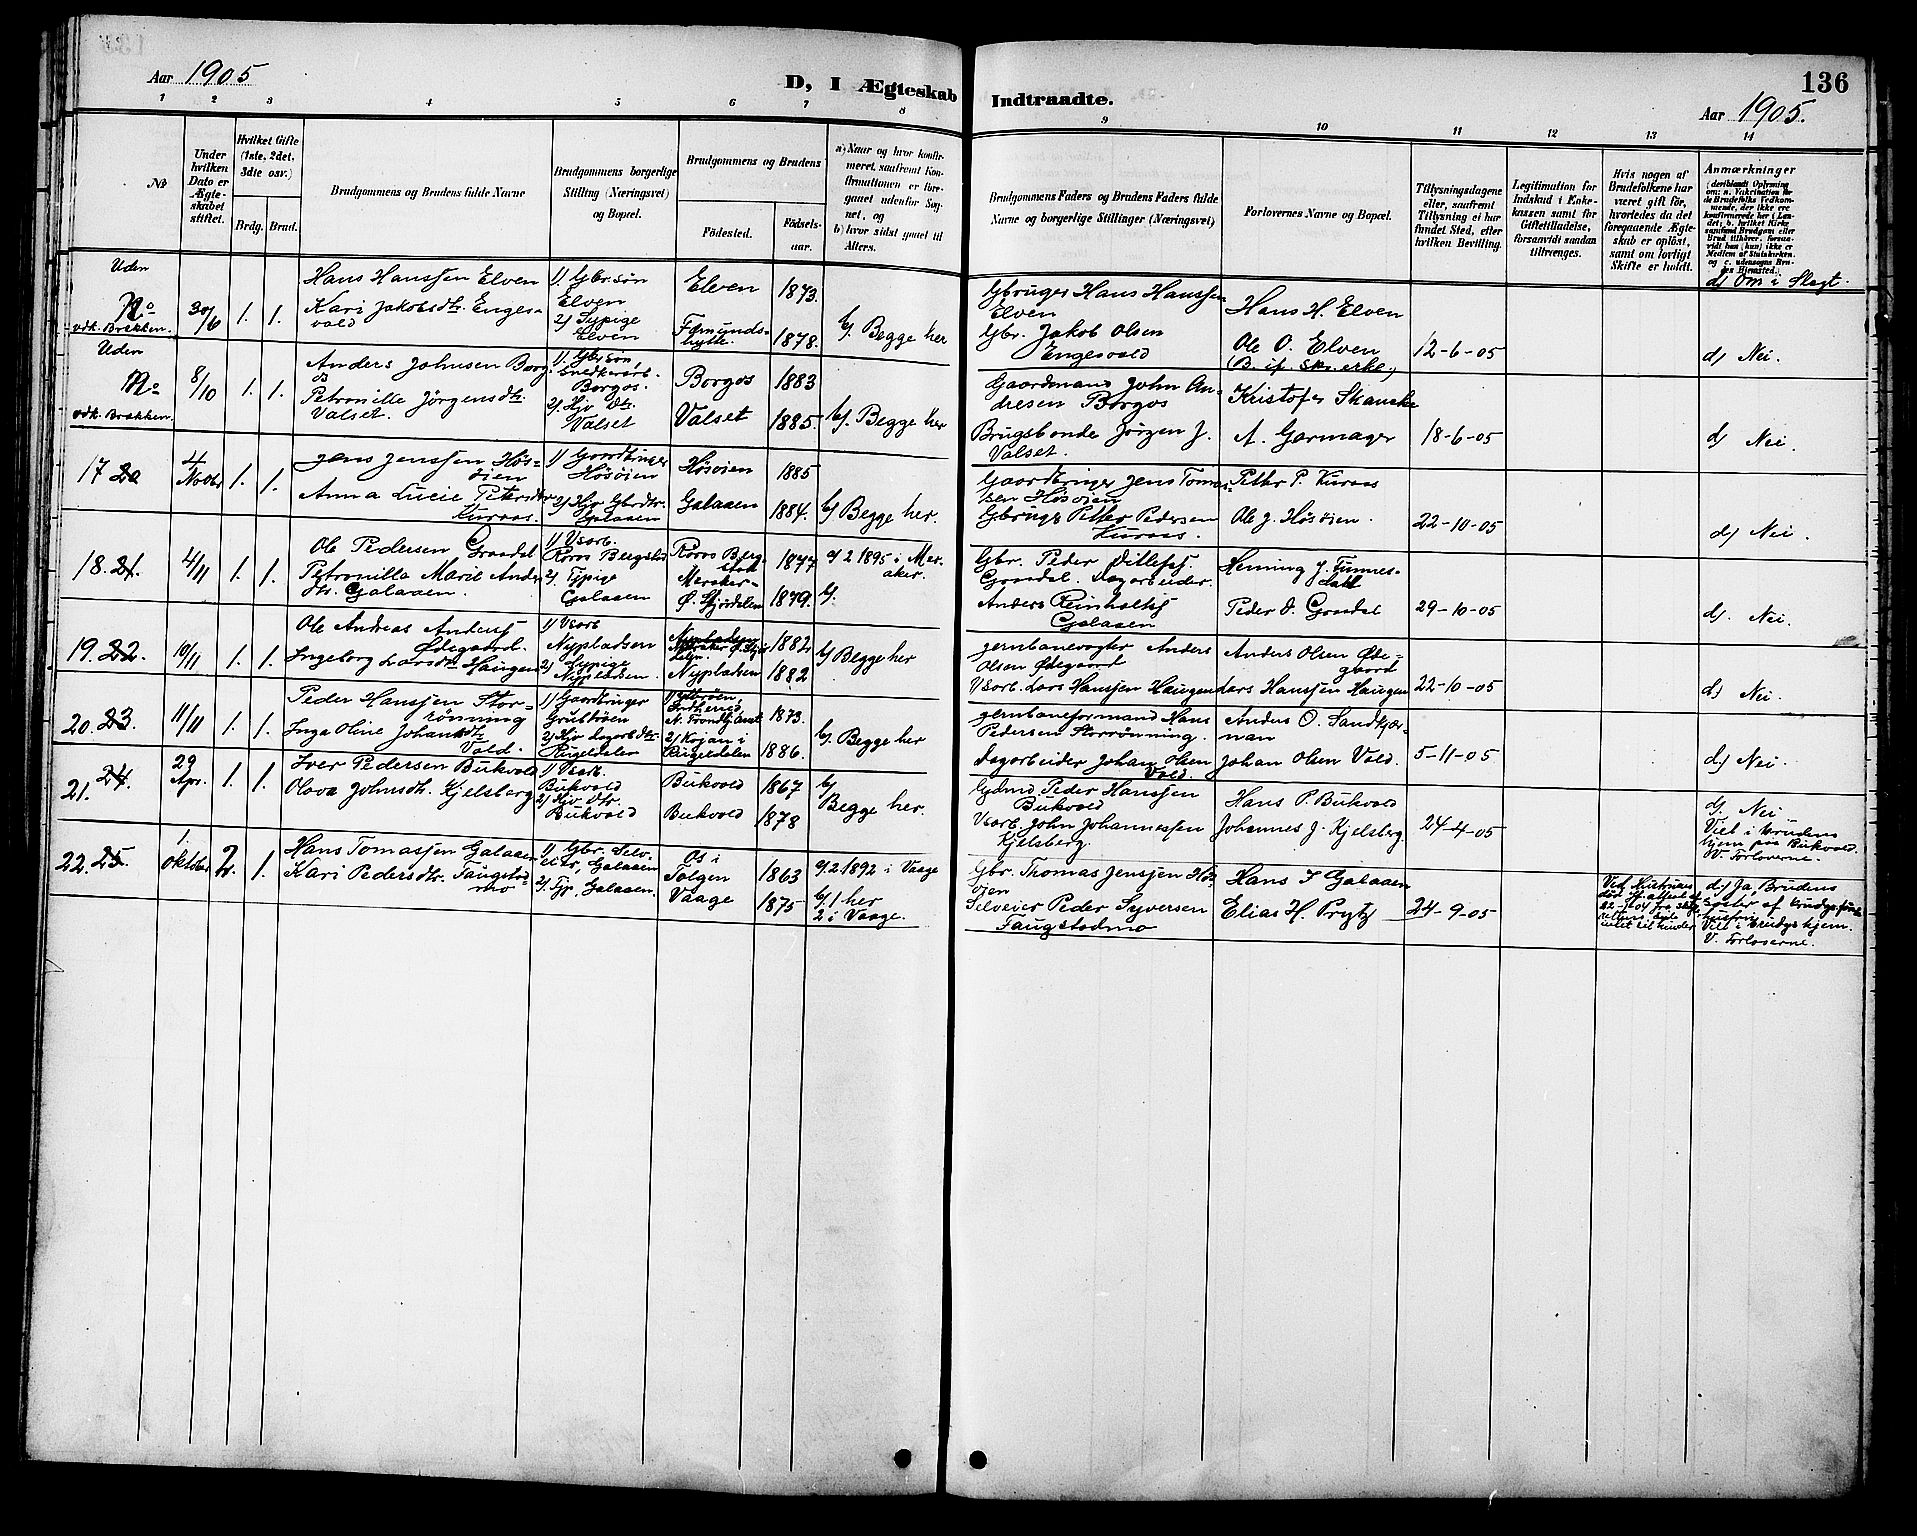 Aar 1905
D, I Ægteskab Indtraadte.
136
Aar 1905.
1 2 3 4 5 6 7 8 9 10 11 12 13 14
No
Under hvilken Dato er Ægteskabet stiftet.
Hvilket Gifte (1ste, 2det, 3die osv.)
Brdg. Brud.
Brudgommens og Brudens fulde Navne
Brudgommens borgerlige Stilling (Næringsvei) og Bopæl.
Brudgommens og Brudens
Födested.
Födselsaar.
a) Naar og hvor konfirmeret, saafremt Konfirmationen er foregaaet udenfor Sognet, og
b) hvor sidst gaaet til Alters.
Brudgommens Faders og Brudens Faders fulde Navne og borgerlige Stillinger (Næringsvei)
Forlovernes Navne og Bopæl.
Tillysningsdagene eller, saafremt Tillysning ei har fundet Sted, efter hvilken Bevilling.
Legitimation for Indskud i Enkekassen samt for Giftetilladelse, forsaavidt saadan tiltrænges.
Hvis nogen af Brudefolkene har været gift för, hvorledes da det foregaaende Ægteskab er oplöst, samt om lovligt Skifte er holdt.
Anmærkninger
Uden No vdk. Brækken.
30/6 1. 1.
Hans Hanssen Elven
Kari Jakobsdtr. Engesvold
1) Gbr.søn Elven
2) Sypige Elven
Elven 1873.
Fæmundshytte. 1878.
b). Begge her
Gbruger Hans Hanssen Elven
Gbr. Jakob Olsen Engesvold
Hans H. Elven
Ole O. Elven
12-6-05
d) Om i Slegt.
d) Nei.
Uden No vdk. Brækken.
8/10 1. 1.
Anders Johnsen Borgos
Petronille Jörgensdtr. Valset.
1). Gbr.søn Snedkerarb. Borgos.
2). Hjv. Dtr. Valset
Borgos 1883
Valset 1885.
b). Begge her
Gaardmand John Andresen Borgos
Brugsbonde Jörgen J. Valset.
Kristofer Skancke
A. Garmager
18-6-05
d) Nei.
17 20
4 Novbr 1. 1.
Jens Jenssen Hösöien
Anna Lucie Petersdtr Kuraas.
1) Gaardbruger Hösöien
2) Hjv. Gbr.dtr. Galaaen
Hösöien 1885
Galaaen 1884.
b) Begge her.
Gaardbruger Jens Tomassen Hösöien
Gbruger Petter Pedersen Kuraas.
Petter P. Kuraas
Ole J. Hösöien.
22-10-05
d) Nei.
18. 21.
4/11 1. 1.
Ole Pedersen Graadal
Petronilla Marie Andersdtr. Galaaen.
1) Vsarb. Röros Bergstad
2) Typige Galaaen
Röros Bergstad 1877
Meraker Ö. Stjördalen 1879.
a) 2 1895 i Meraker.
b).
Gbr. Peder Ditlefs. Graadal. Dagarbeider.
Anders Reinholts Galaaen
Henning J. Tunnesdall
Peder O. Graadal
29-10-05
d). Nei.
19. 22.
10/11 1. 1.
Ole Andreas Anders Ødegaard.
Ingeborg Larsdtr. Haugen
1) Vsarb Nypladsen
2) Sypige Nypladsen.
1882
Nypladsen 1882
b) Begge her
Jernbanevogter Anders Olsen Ødegaard
Vsarb. Lars Hanssen Haugen
Anders Olsen Ødegaard
Lars Hanssen Haugen
22-10-05
d) Nei.
20. 23.
11/11 1. 1.
Peder Hanssen Storrönning
Inga Oline Johansdtr. Vold.
1) Gaardbruger Grubröen
2) Hjv. dagarb.dtr. Rugeldalen
Ytterøen, N. Trondhj. Amt 1873.
2) Kojan i Rugeldalen 1886.
b). Begge her
Jernbaneformand Hans Pedersen Storrönning.
Dagarbeider Johan Olsen Vold.
Anders O. Sandkjærnan
Johan Olsen Vold.
5-11-05
d) Nei.
21. 24.
29 Apr. 1. 1.
Iver Pedersen Bukvold
Olava Johnsdtr. Kjelsberg
1) Vsarb. Bukvold
2) Hjv. dtr. Bukvold
Bukvold 1867
Bukvold 1878
b) Begge her.
Gdmd. Peder Hanssen Bukvold
Vsarb. John Johannessen Kjelsberg.
Hans P. Bukvold
Johannes J. Kjelsberg.
24-4-05
d). Nei.
Viet i Brudens hjem paa Bukvold.
V. Forloverne.
22. 25.
1 Oktober 2. 1.
Hans Tomassen Galaaen
Kari Pedersdtr. Faugstadmo
1) Gbr. Selveier, Galaaen
2). Tjp. Galaaen.
Os i Tolgen 1863
Vaage 1875
a). 2 1892 i Vaage
b). 1 her
2 i Vaage.
Gbr. Thomas Jenssen Hösöien
Selveier Peder Syversen Faugstadmo
Hans T Galaaen
Elias H. Prytz
24-9-05
d) Ja, Brudens Søster af Brudgs. første hustru.
Viet i Brudgs hjem.
V. Forloverne.